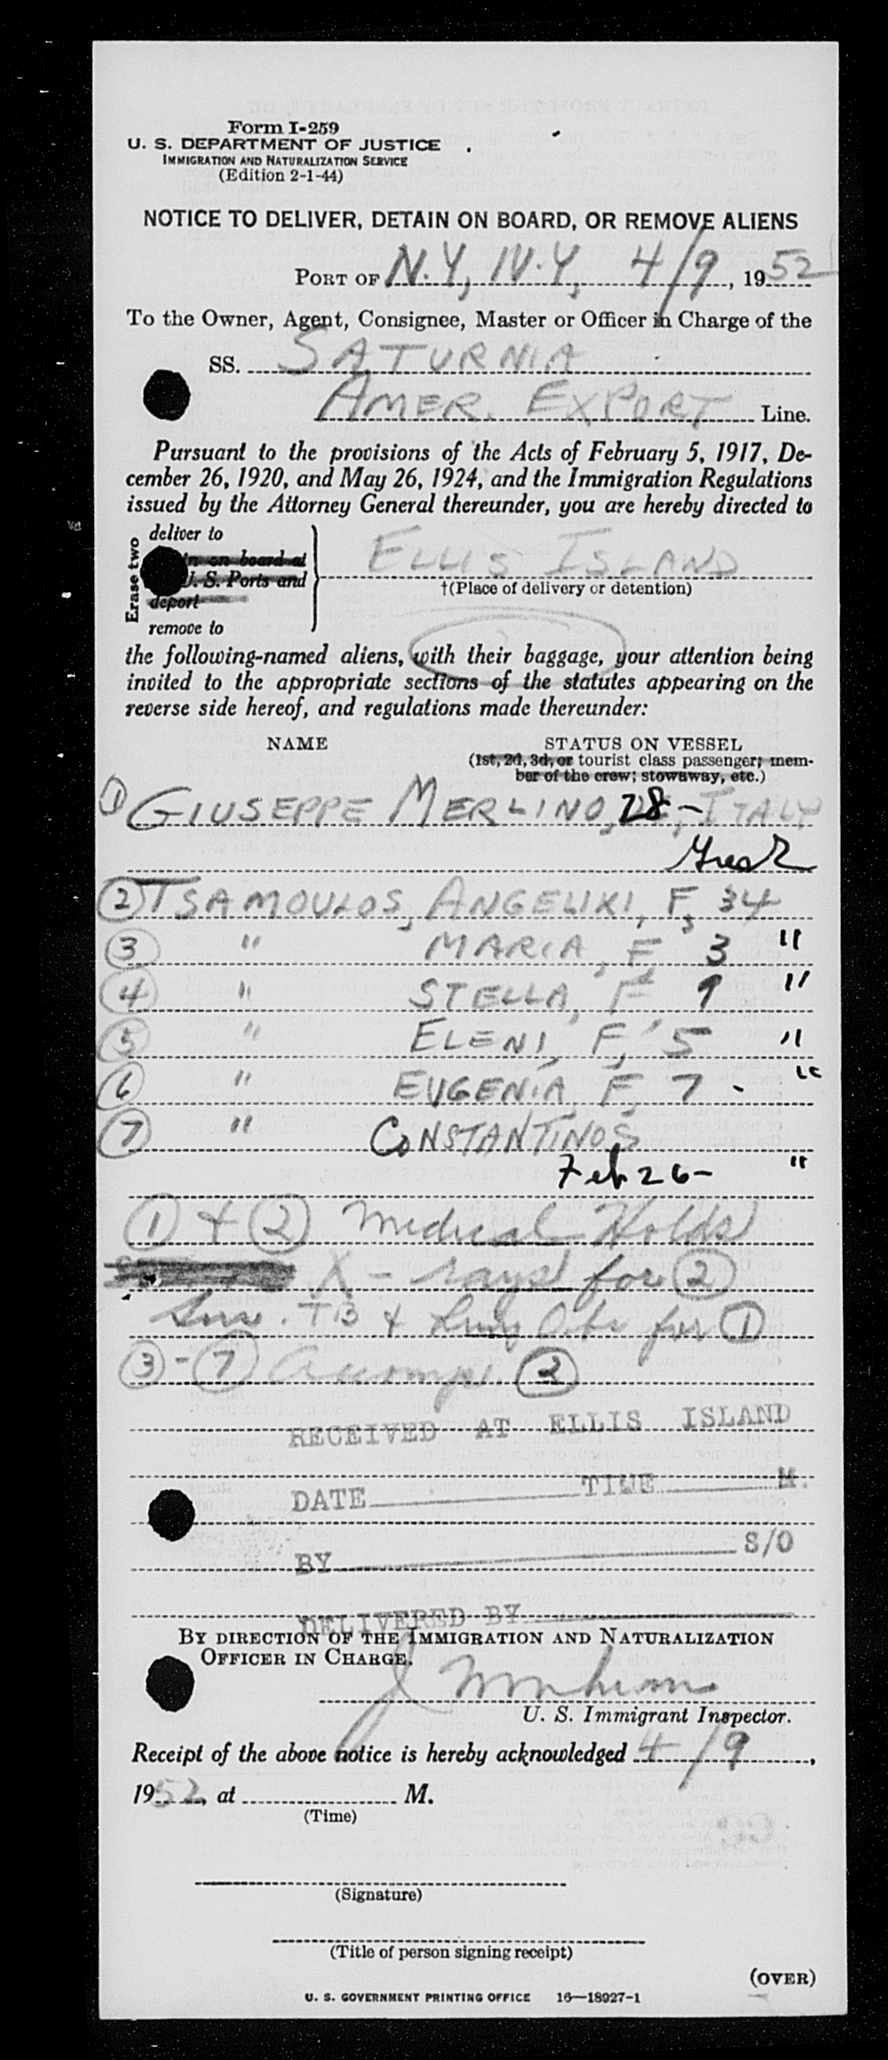 Form I-259
U. S. DEPARTMENT OF JUSTICE
IMMIGRATION AND NATURALIZATION SERVICE
(Edition 2-1-44)
NOTICE TO DELIVER, DETAIN ON BOARD, OR REMOVE ALIENS
PORT OF N.Y., N.Y., 4/9, 1952
To the Owner, Agent, Consignee, Master or Officer in Charge of the
SS. SATURNIA
AMER. EXPORT Line.
Pursuant to the provisions of the Acts of February 5, 1917, De-
cember 26, 1920, and May 26, 1924, and the Immigration Regulations
issued by the Attorney General thereunder, you are hereby directed to
Erase two
deliver to
in on board at
U. S. Ports and
deport
remove to
ELLIS ISLAND
†(Place of delivery or detention)
the following-named aliens, with their baggage, your attention being
invited to the appropriate sections of the statutes appearing on the
reverse side hereof, and regulations made thereunder:
NAME STATUS ON VESSEL
(1st, 2d, 3d, or tourist class passenger; mem-
ber of the crew; stowaway, etc.)
① GIUSEPPE MERLINO, 28 - ITALY
② TSAMOULOS, ANGELIKI, F, 34
③ " MARIA, F 3 "
④ " STELLA, F 9 "
⑤ " ELENI, F, 5 "
⑥ " EUGENIA, F, 7 - "
⑦ " CONSTANTINOS
Feb 26 - "
① + ② Medical Holds
X-rays for ②
TB & Lung Obs for ①
③-⑦ Accomp. ②
RECEIVED AT ELLIS ISLAND
DATE TIME M.
BY S/O
DELIVERED BY
BY DIRECTION OF THE IMMIGRATION AND NATURALIZATION
OFFICER IN CHARGE.
U. S. Immigrant Inspector.
Receipt of the above notice is hereby acknowledged 4/9,
1952, at M.
(Time)
(Signature)
(Title of person signing receipt)
(OVER)
U. S. GOVERNMENT PRINTING OFFICE 16—18927-1